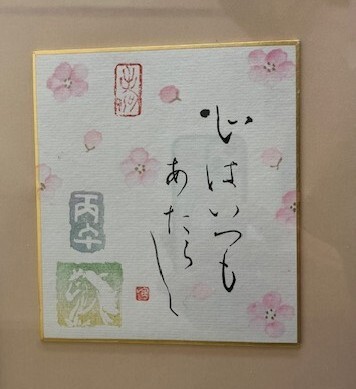 心はいつも
あたらし
丙午